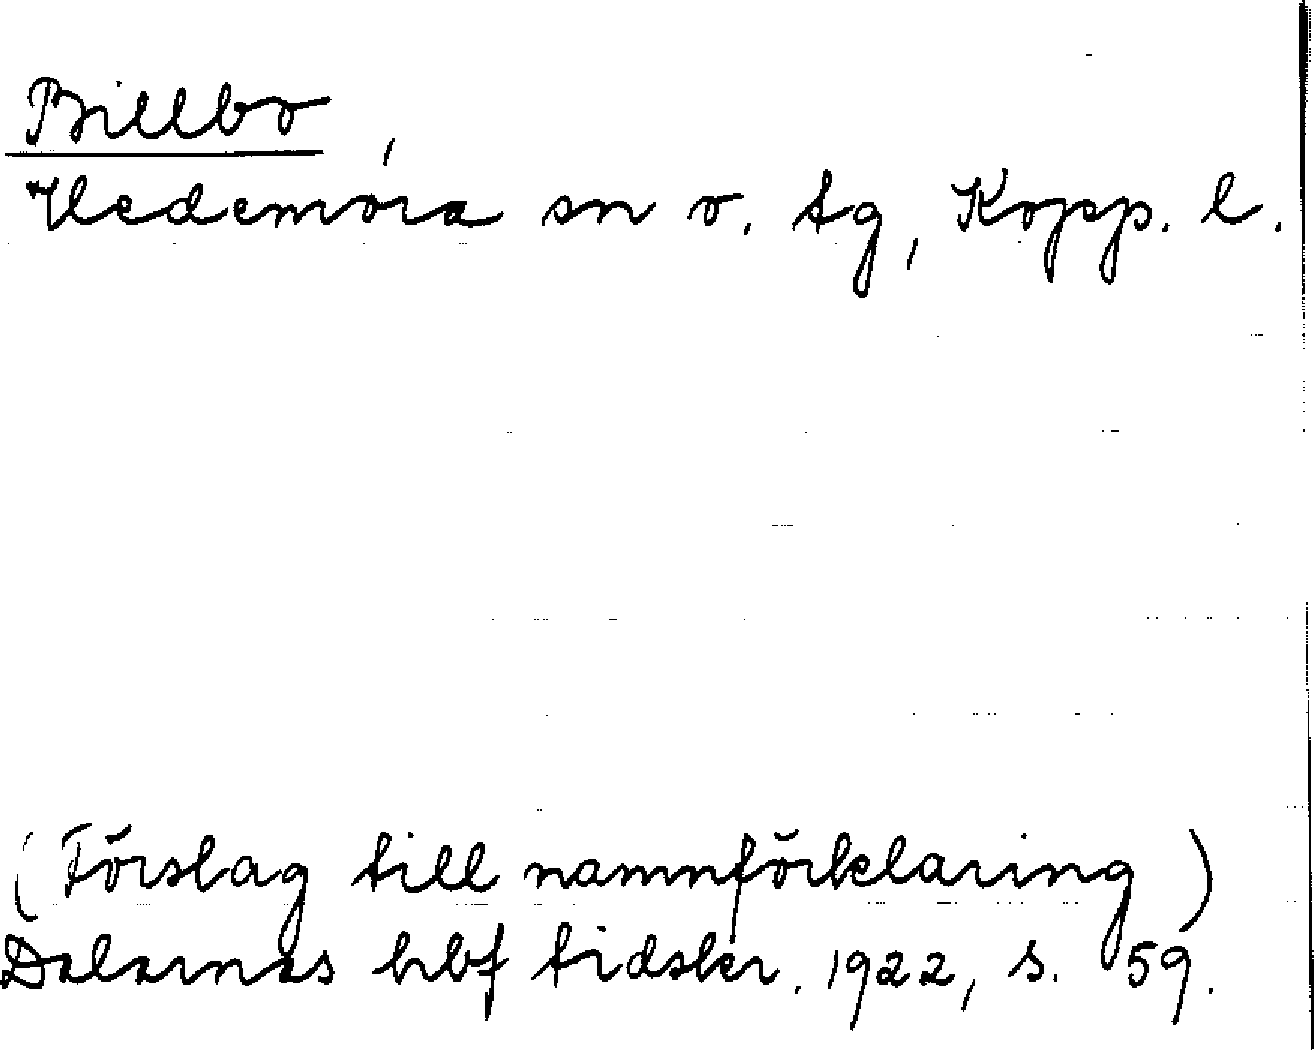 Billbo,
Hedemora sn o. tg, Kopp. l.
(Förslag till namnförklaring)
Dalarnas hbf tidskr. 1922, s. 59.